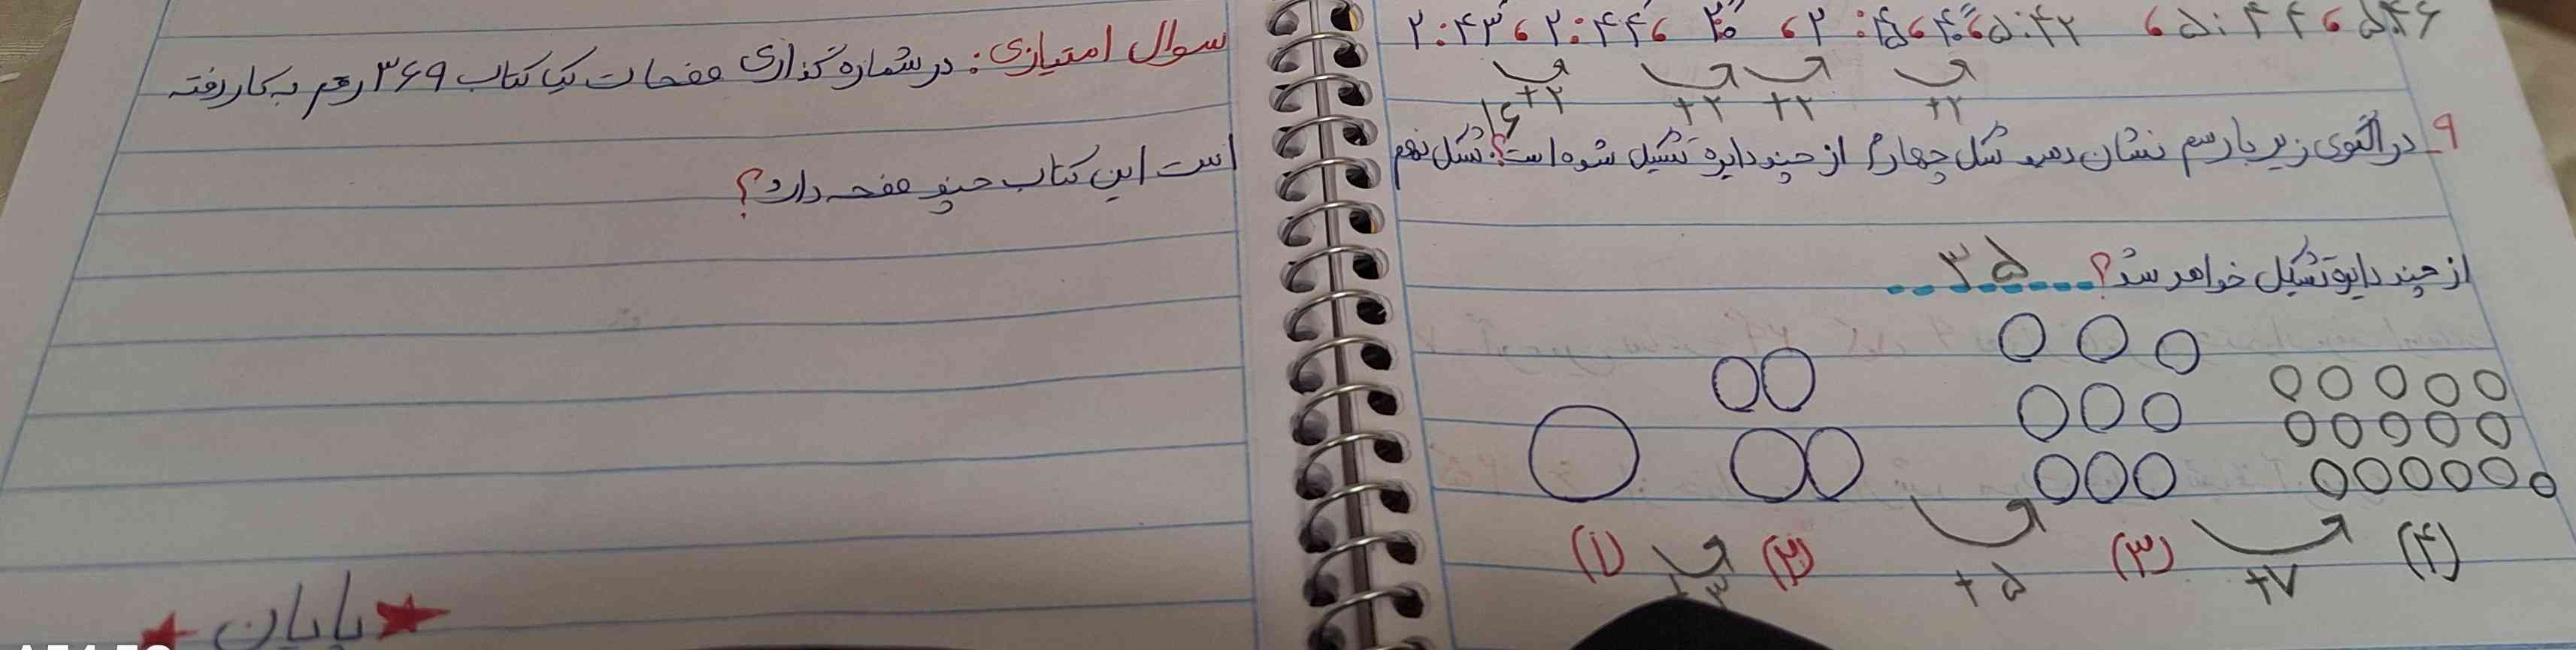 ۲:۴۳ ، ۲:۴۴ ، ۵:۴۲ ، ۵:۴۴ ، ۵:۴۶
+۲ +۲ +۲ +۲
۱۶
۹_ در الگوی زیر با رسم نشان دهید شکل چهارم از چند دایره تشکیل شده است؟. شکل نهم
از چند دایره تشکیل خواهد شد؟ ۳۵
(۱) (۲) (۳) (۴)
+۳ +۵ +۷
سوال امتیازی: در شماره گذاری صفحات یک کتاب ۳۶۹ رقم به کار رفته
است این کتاب چند صفحه دارد؟
پایان